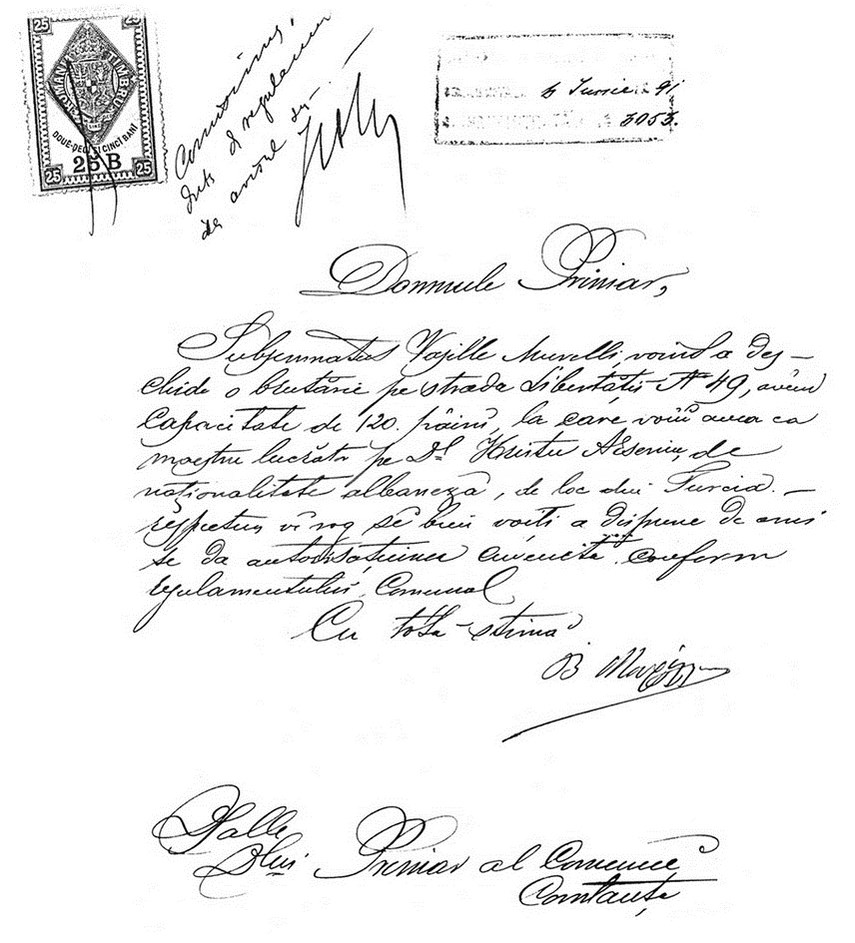 25 25
ROMANIA TIMBRU
DOUĔ-ḐECI ȘI CINCĬ BANĬ
25 B
25 25
de avisul
6 Iunie 91
3053.
Domnule Primar,
Subsemnatul Vasille Muvelli, voind a des-
chide o brutărie pe strada Libertăței No 49, avênd
capacitate de 120. pâini, la care voiŭ avea ca
maestru lucrător pe Dl. Hristu Arseniu, de
naționalitate albaneză, de loc din Turcia. –
respectuos vĕ rog sĕ bine voiți a dispune de ami
se da autorisațiunea cuvenită conform
regulamentului Comunal
Cu totă stima
B
Dsalle
Dlui Primar al Comunei
Constanța